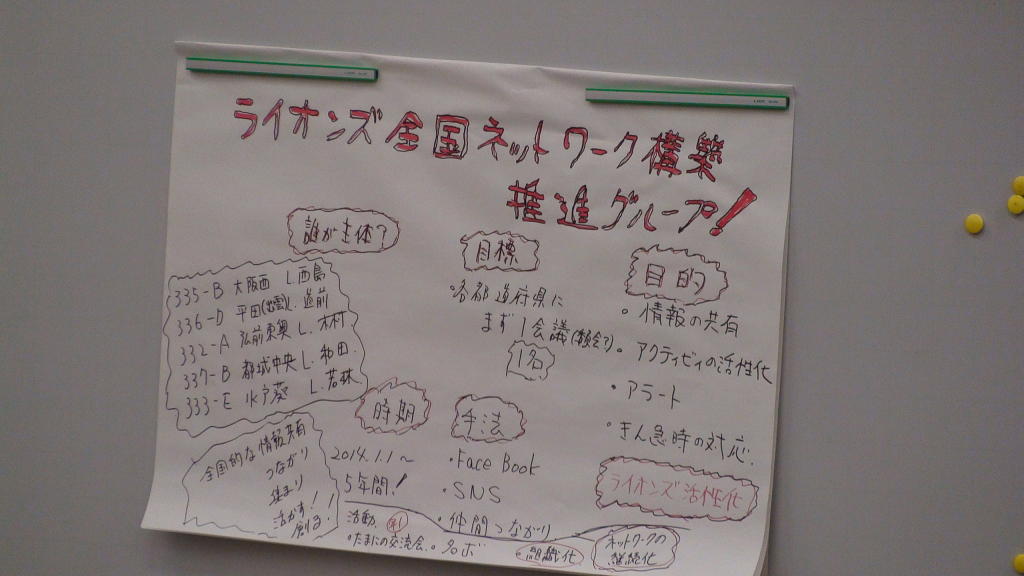 ライオンズ全国ネットワーク構築
推進グループ!
誰が主体?
335-B 大阪西 L.西島
336-D 平田(出雲)L.道前
332-A 弘前東奥 L.木村
337-B 都城中央 L.和田
333-E 水戸葵 L.若林
目標
・各都道府県に
まず1会議
1名
目的
・情報の共有
・アクティビィの活性化
・アラート
・きん急時の対応
ライオンズ活性化
時期
2014.1.1~
5年間!
手法
・Face Book
・SNS
・仲間つながり
全国的な情報共有
つながり
集まり
活かす!
創る!
活動
・たまの交流会
・名ボ
・組織化
ネットワークの
継続化